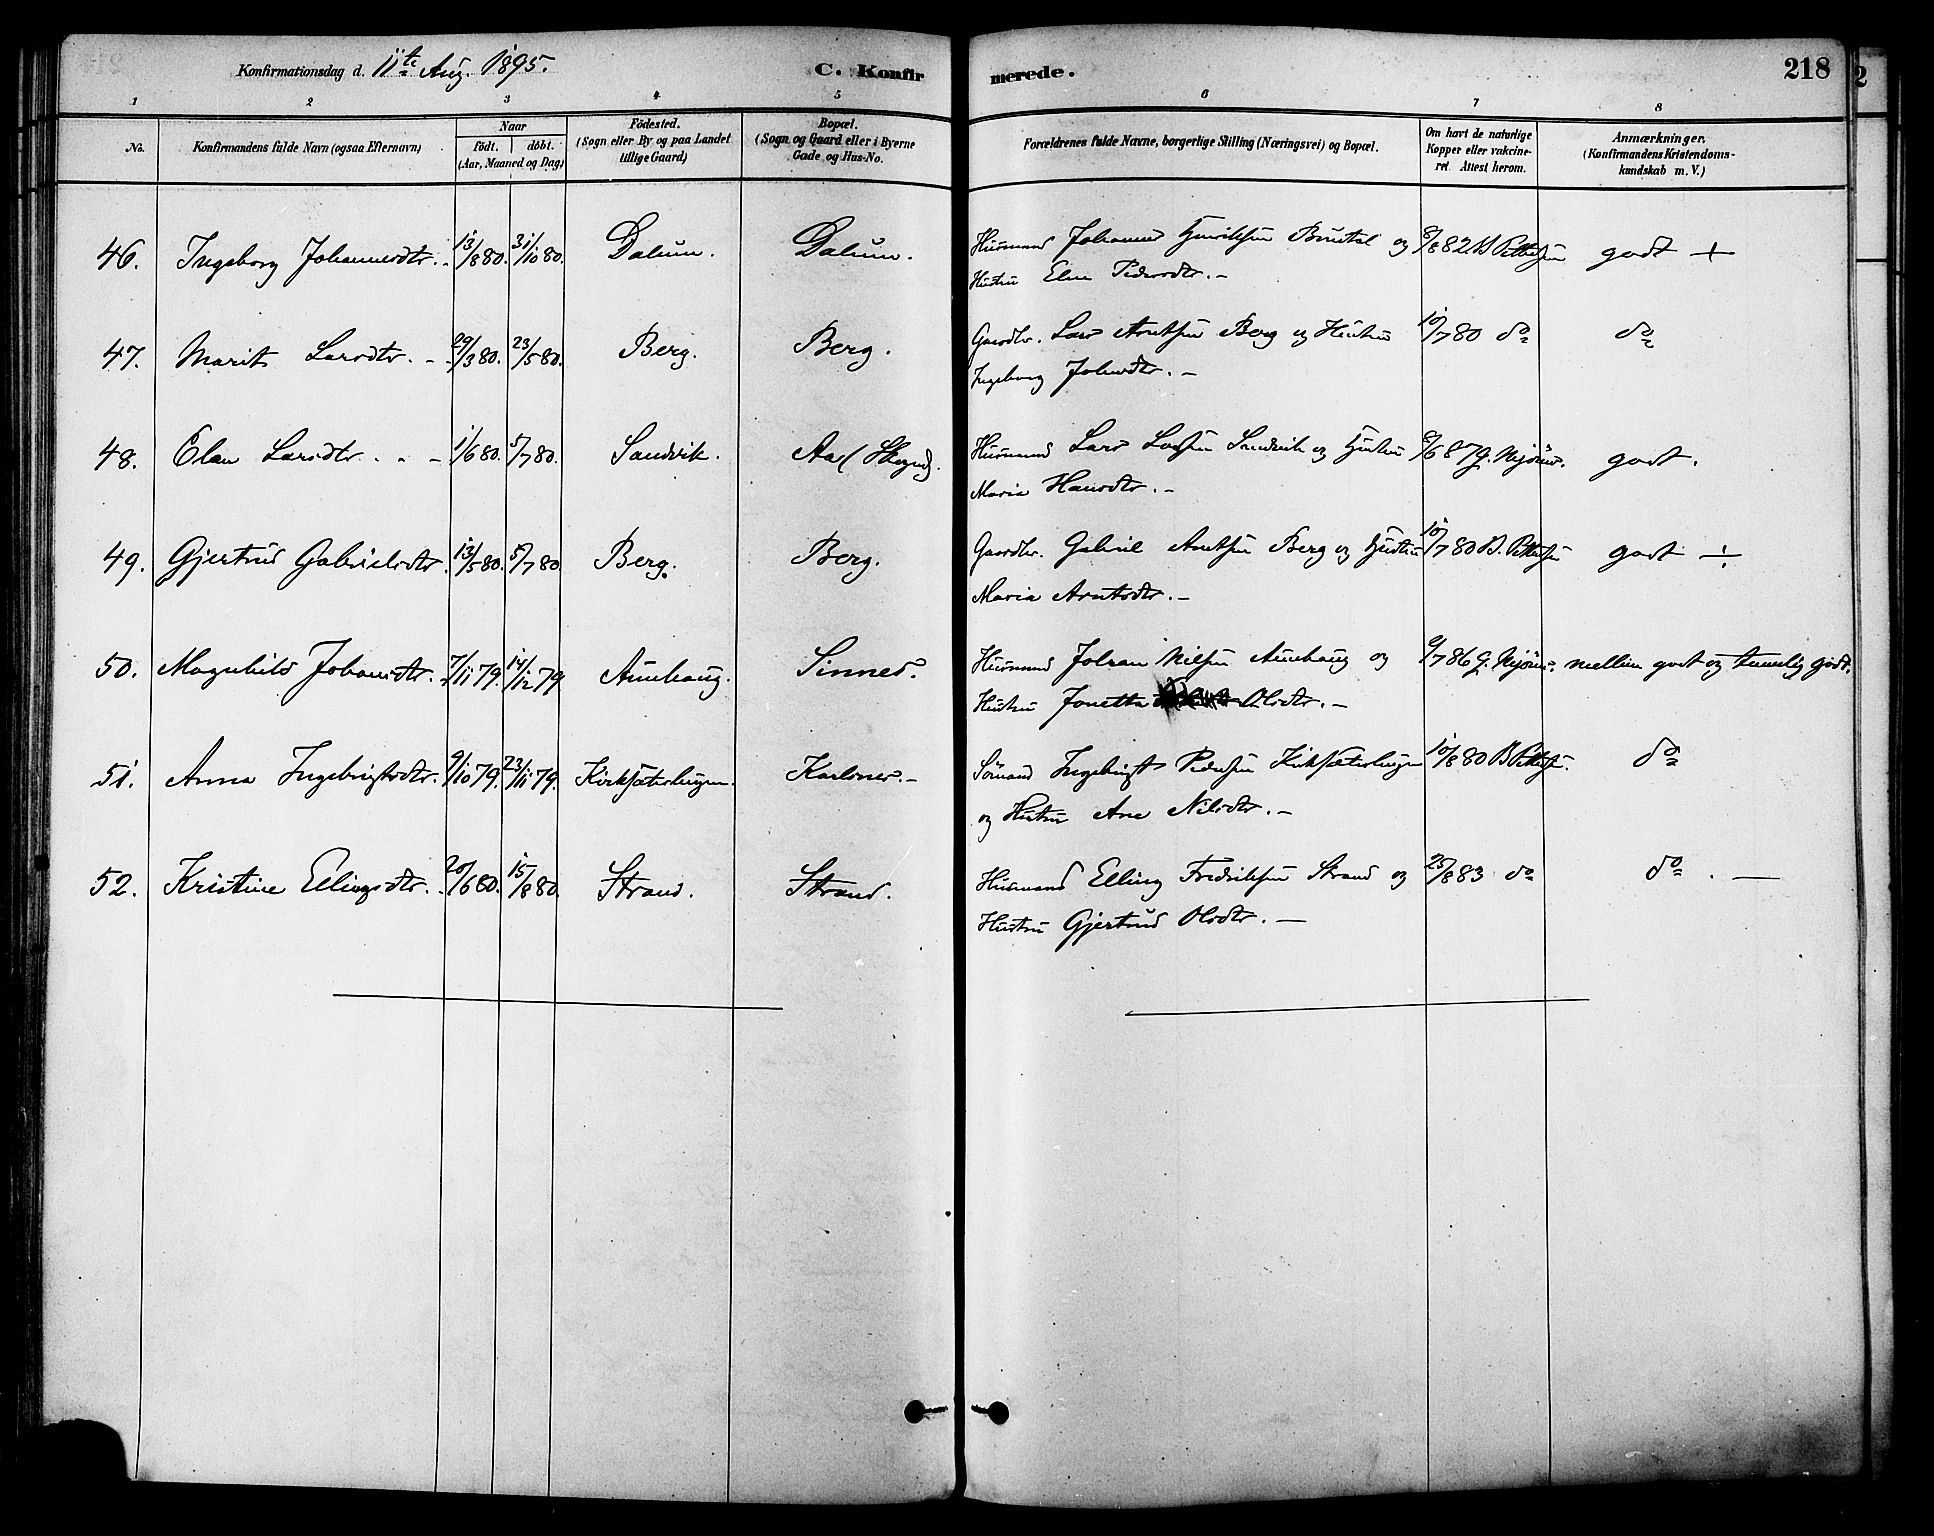 Konfirmationsdag d. 11te Aug. 1895. C. Konfirmerede. 218
1 2 3 4 5 6 7 8
No. Konfirmandens fulde Navn (ogsaa Efternavn) Naar födt. döbt. (Aar, Maaned og Dag) Födested. (Sogn eller By og paa Landet tillige Gaard) Bopæl. (Sogn og Gaard eller i Byerne Gade og Hus-No. Forældrenes fulde Navne, borgerlige Stilling (Næringsvei) og Bopæl. Om havt de naturlige Kopper eller vakcineret. Attest herom. Anmærkninger. (Konfirmandens Kristendomskundskab m. V.)
46. Ingeborg Johannesdtr. 13/8 80. 31/10 80. Dalum. Dalum. Husmand Johannes Henriksen og 8/8 82 B Pettersen godt +
Hustru Elen Pedersdtr. –
47. Marit Larsdtr. – 29/3 80. 23/5 80. Berg. Berg. Gaardbr. Lars Arntsen Berg og Hustru 10/7 80 do do
Ingeborg Johnsdtr. –
48. Elen Larsdtr. 1/6 80. 5/7 80. Sandvik. Husmand Lars Larsen Sandvik og Hustru 8/6 87 godt.
Maria Hansdtr. –
49. Gjertrud Gabrielsdtr. 13/5 80. 5/7 80 Berg. Berg. Gaardbr. Gabriel Arntsen Berg og Hustru 10/7 80 B. Pettersen godt ÷
Maria Arntsdtr. –
50. Magnhild Johansdtr. 7/11 79. 14/12 79 Aunhaug. Sinnes. Husmand Johan Nilsen Aunhaug og 9/7 86 mellem godt og temmelig godt.
Hustru Jonetta Olsdtr. –
51. Anna Ingebrigtsdtr. 9/10 79. 23/11 79. Kirksæterhaugen. Karlsnes. – Sömand Ingebrigt Pedersen Kirksæterhaugen 10/8 80 B Pettersen. do
og Hustru Ane Nilsdtr. –
52. Kristine Ellingsdtr. 20/6 80. 15/8 80. Strand. Strand. Husmand Elling Fredriksen Strand og 25/8 83 do do. —
Hustru Gjertrud Olsdtr. –